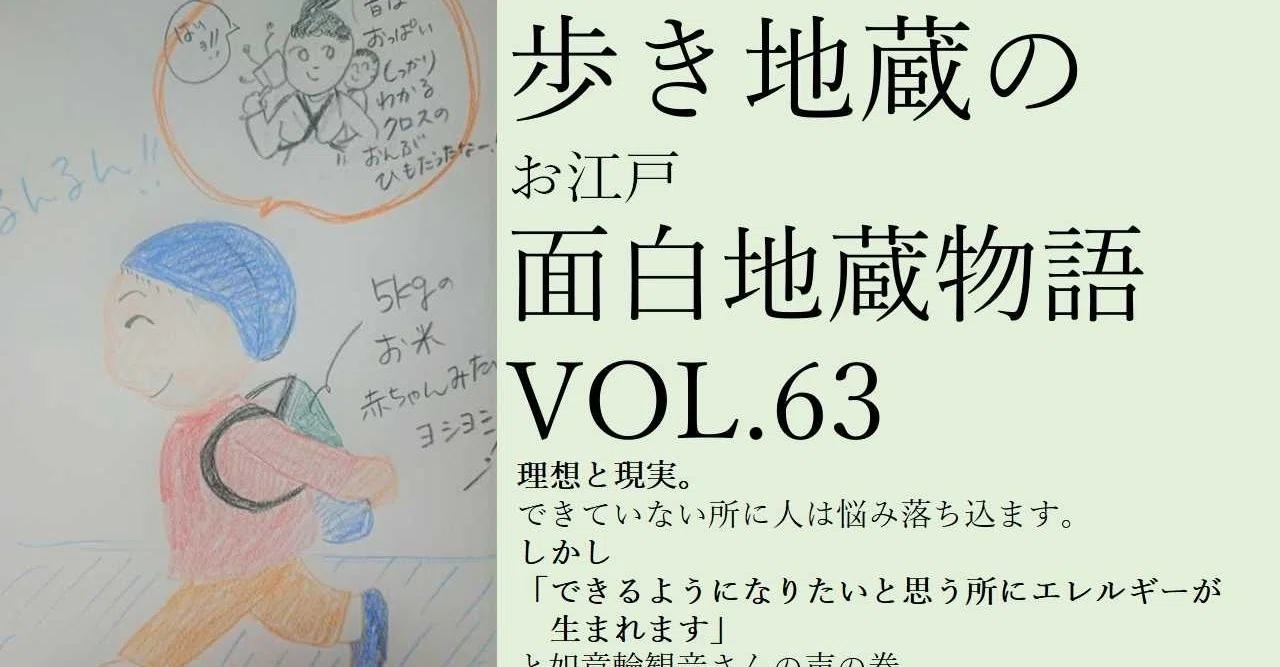 ばぶ!!
昔は
おっぱい
しっかり
わかる
クロスの
おんぶ
ひもだったなー!
るんるん!!
5kgの
お米
赤ちゃんみたい
ヨシヨシ
歩き地蔵の
お江戸
面白地蔵物語
VOL.63
理想と現実。
できていない所に人は悩み落ち込ます。
しかし
「できるようになりたいと思う所にエレルギーが
生まれます」
と如意輪観音さんの声の巻